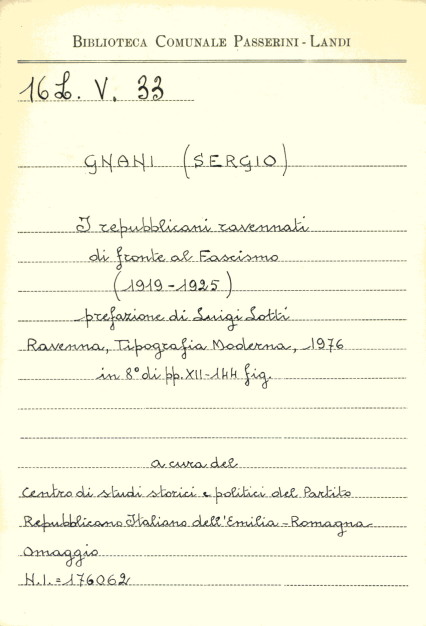 BIBLIOTECA COMUNALE PASSERINI - LANDI
16 L. V. 33
GNANI (SERGIO)
I repubblicani ravennati
di fronte al Fascismo
(1919-1925)
prefazione di Luigi Lotti
Ravenna, Tipografia Moderna, 1976
in 8° di pp. XII-144 fig.
a cura del
Centro di studi storici e politici del Partito
Repubblicano Italiano dell'Emilia-Romagna
Omaggio
N.I.=176062